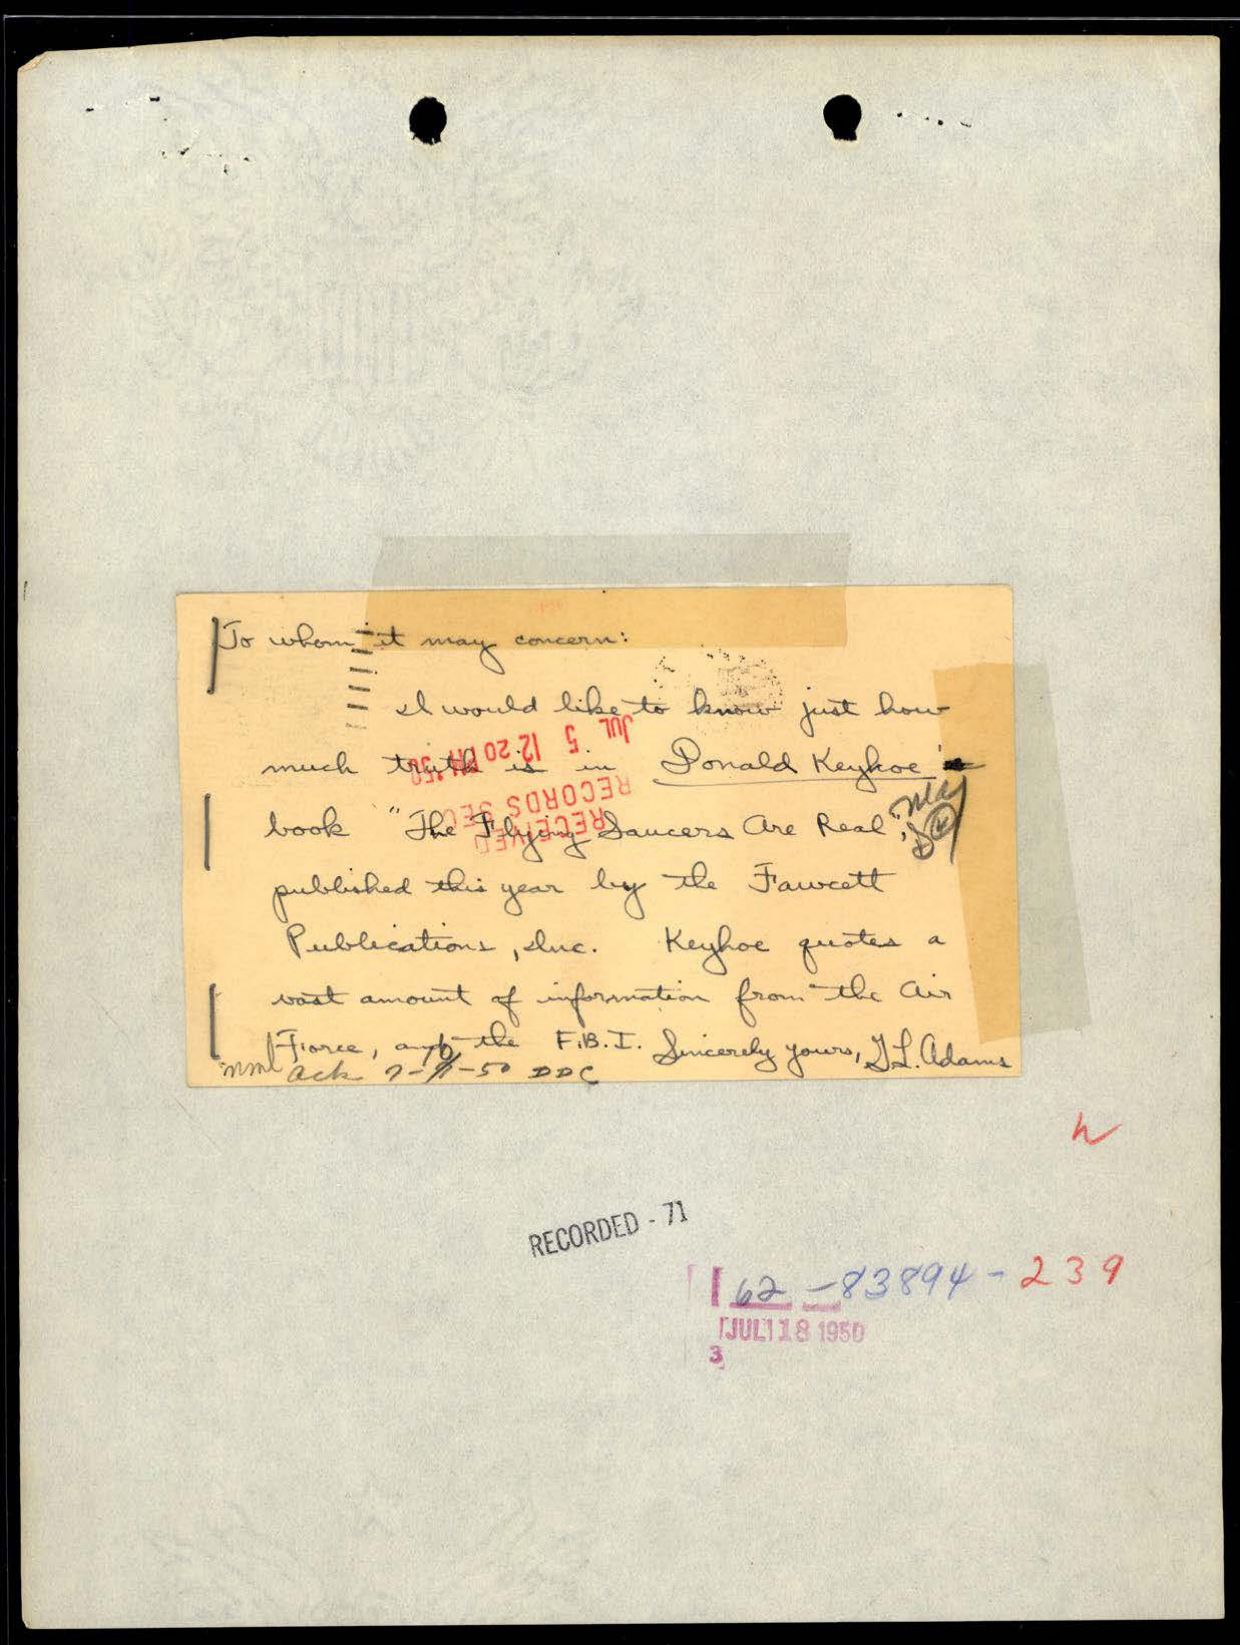 To whom it may concern:
I would like to know just how
much truth is in Donald Keyhoe's
book "The Flying Saucers Are Real",
published this year by the Fawcett
Publications, Inc. Keyhoe quotes a
vast amount of information from the Air
Force, and the F.B.I. Sincerely yours, T.L. Adams
Ack 7-50 DDC
JUL 5 12 20 PM '50
RECEIVED
RECORDS SEC
RECORDED - 71
62-83894-239
JUL 18 1950
3